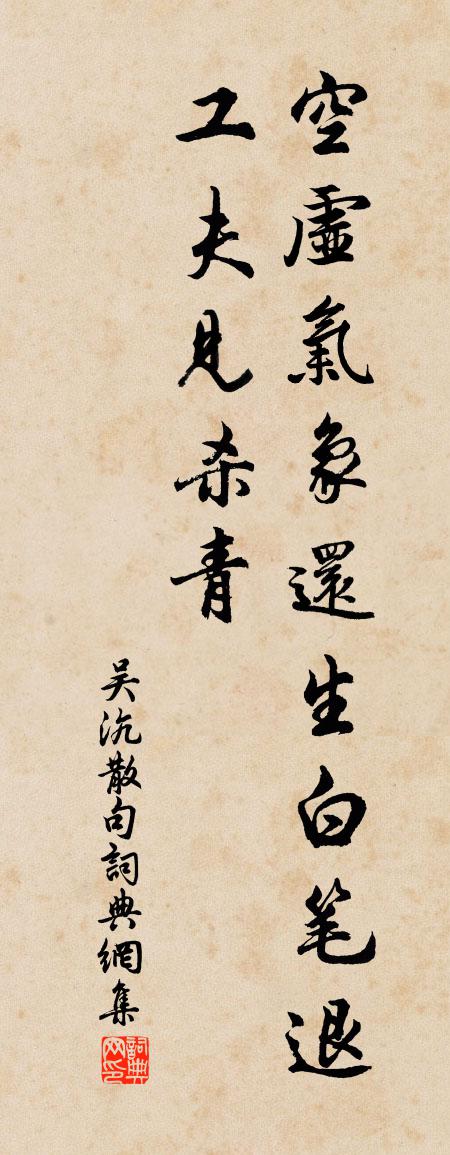 空虛氣象還生白笔退
工夫見杀青
吴沆散句詞典網集
詞典网印